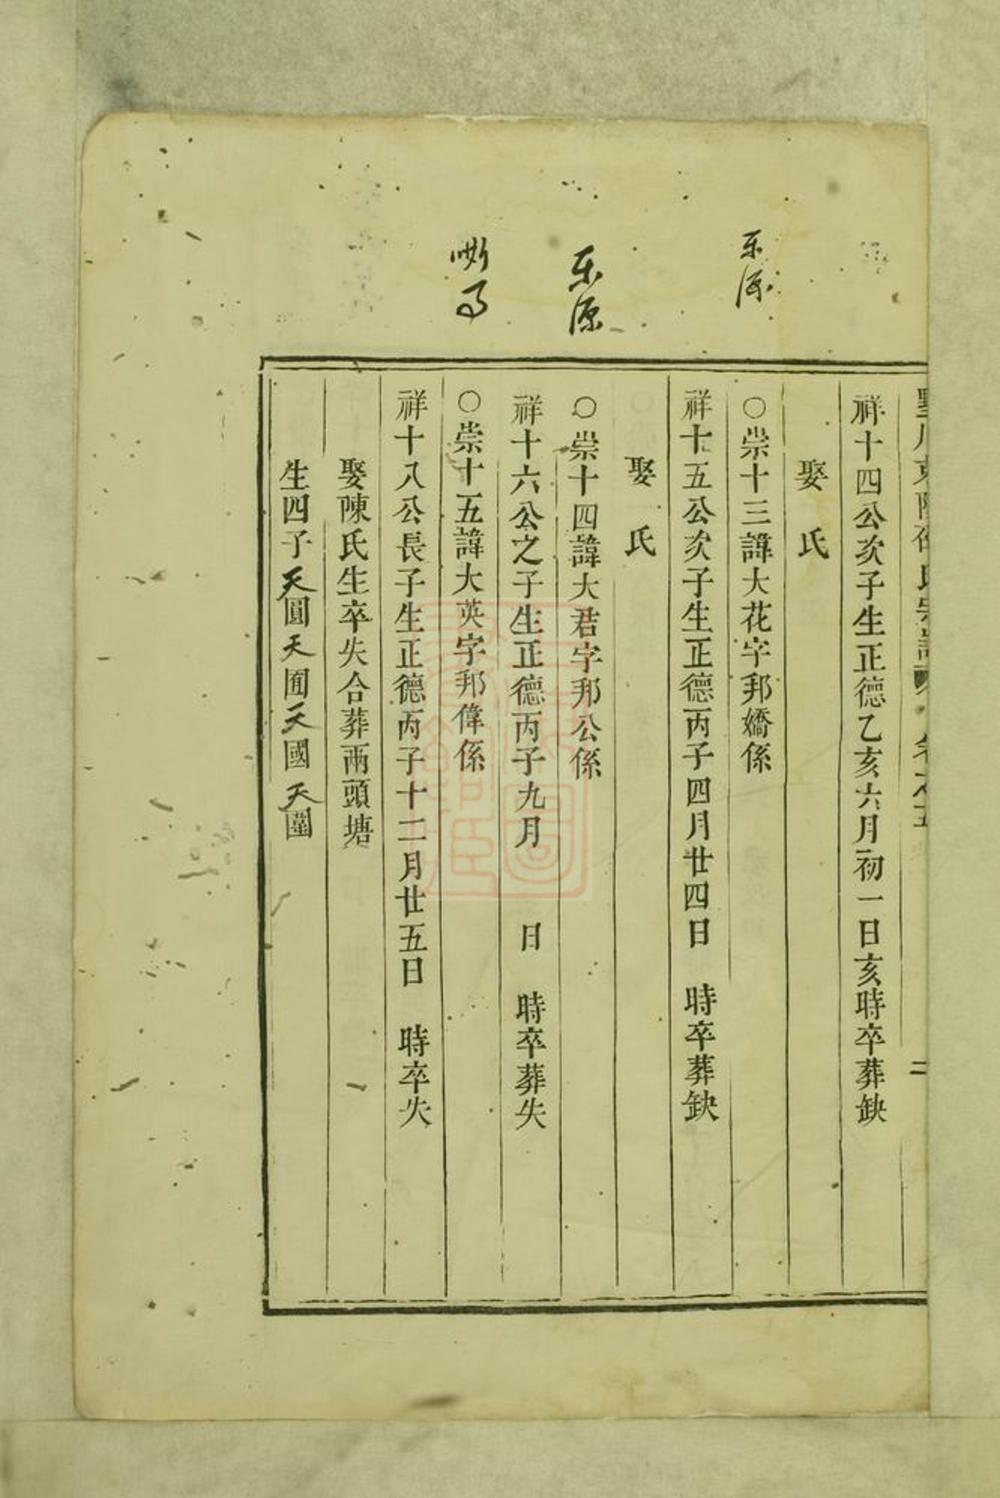 東源
東源
祥十四公次子生正德乙亥六月初一日亥時卒葬缺
娶 氏
○崇十三諱大花字邦嬌係
祥十五公次子生正德丙子四月廿四日 時卒葬缺
娶 氏
○崇十四諱大君字邦公係
祥十六公之子生正德丙子九月 日 時卒葬失
○崇十五諱大英字邦偉係
祥十八公長子生正德丙子十二月廿五日 時卒失
娶陳氏生卒失合葬兩頭塘
生四子天圓天囿天國天圍